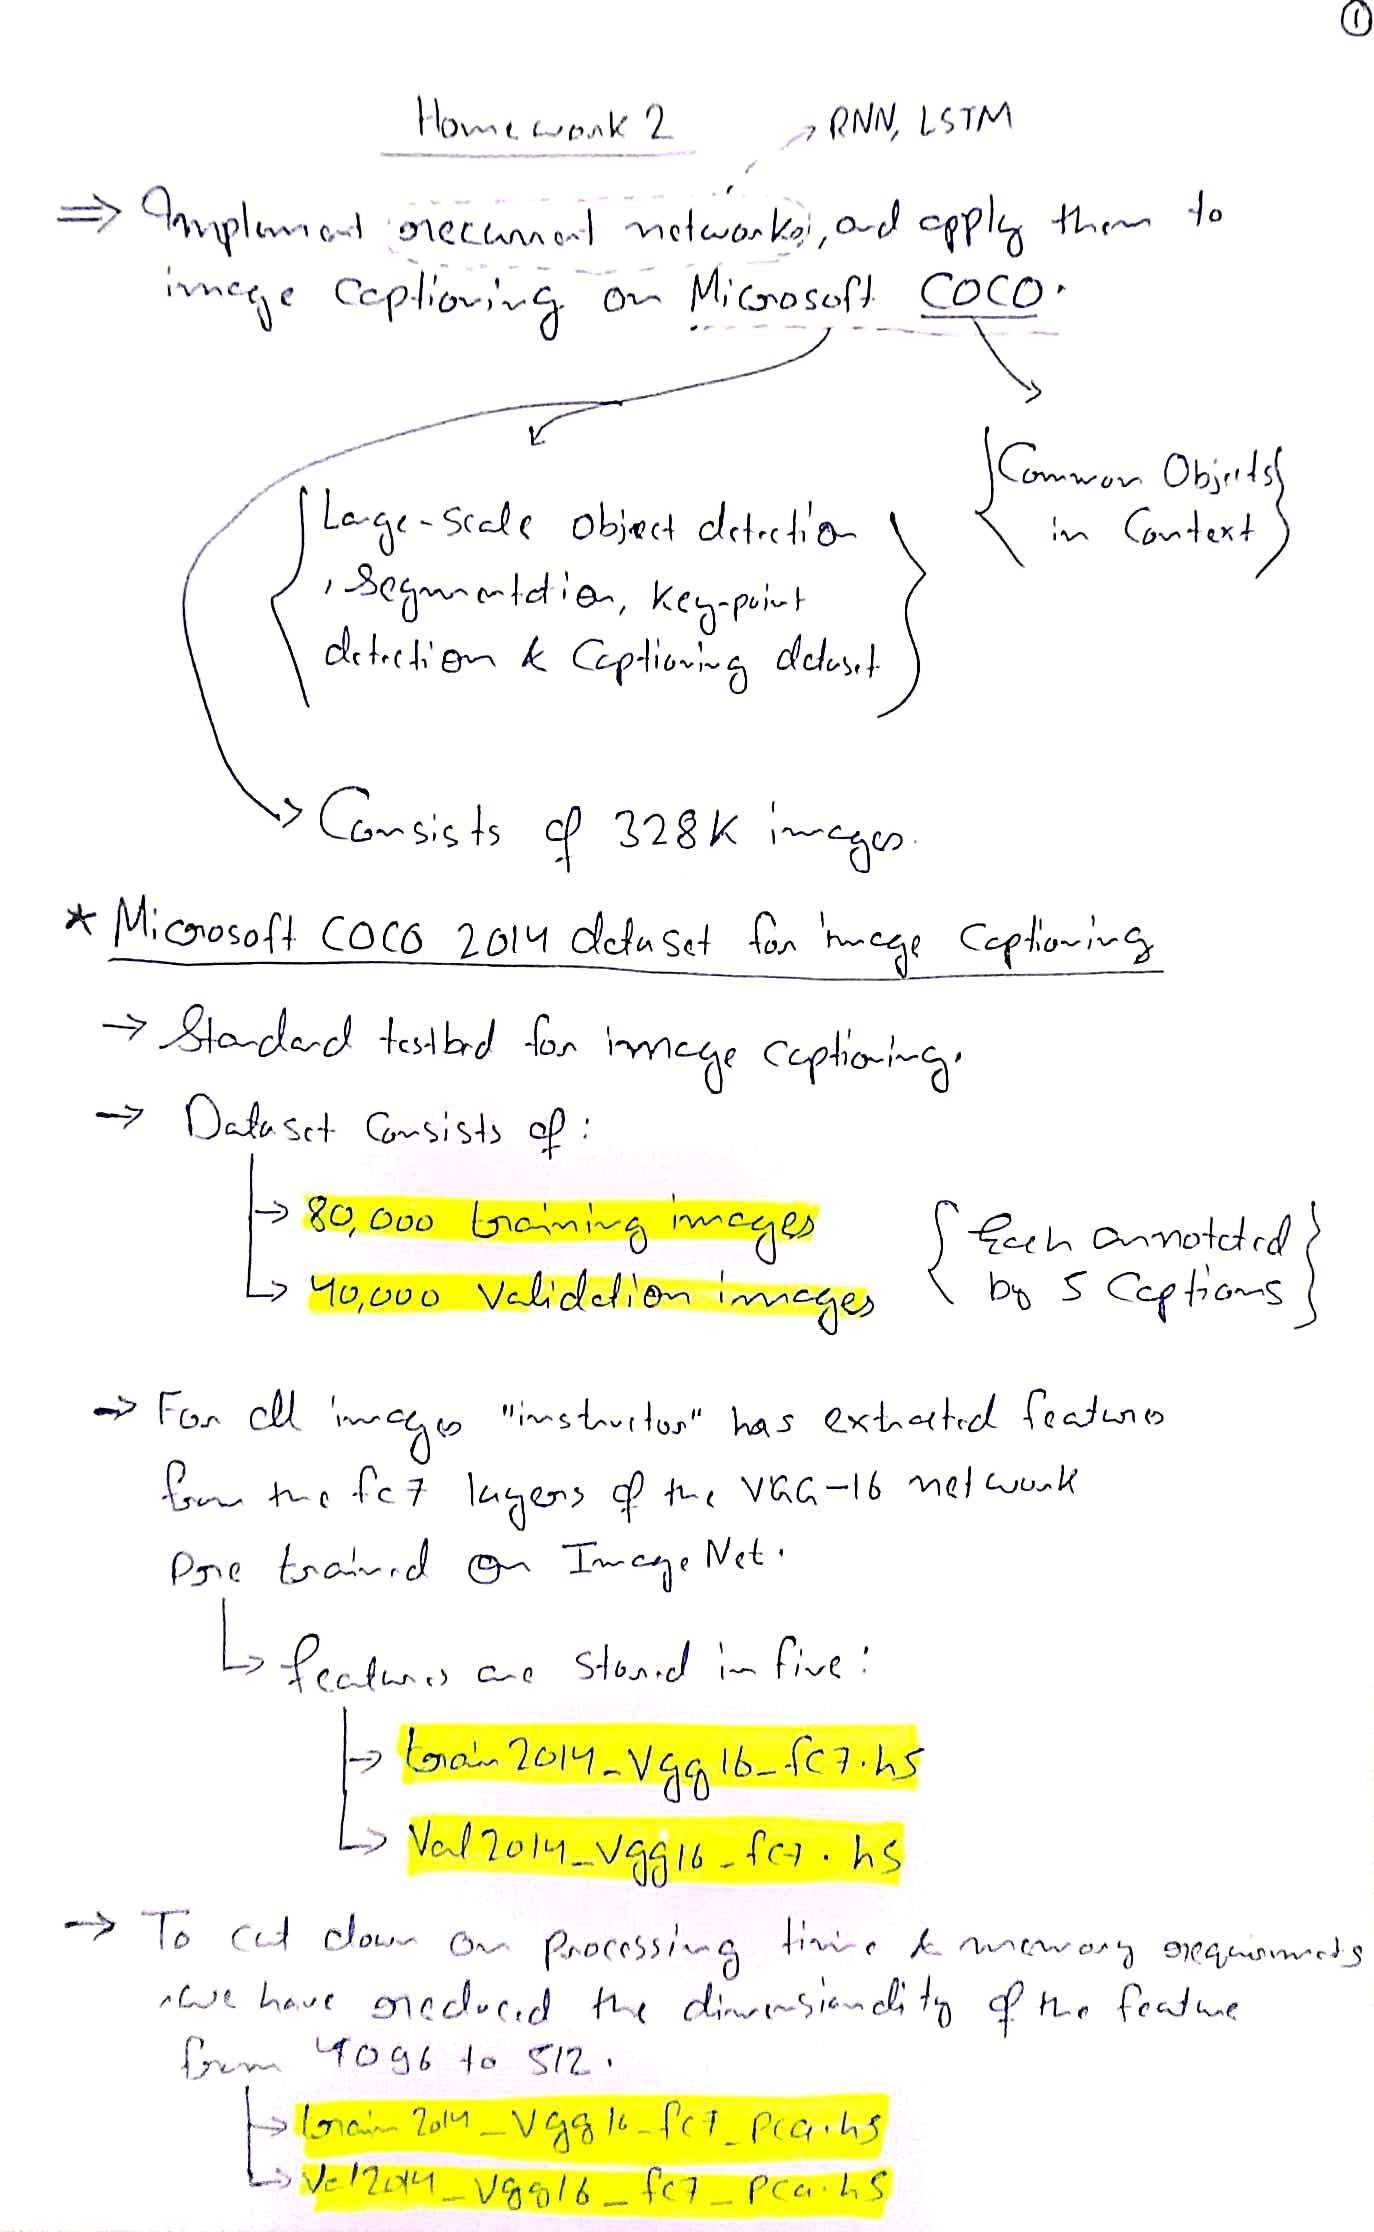 ①
Homework 2
RNN, LSTM
⇒ Implement recurrent networks, and apply them to
image captioning on Microsoft COCO.
{Common Objects
in Context}
{Large-scale object detection
, Segmentation, key-point
detection & Captioning dataset}
→ Consists of 328K images.
* Microsoft COCO 2014 dataset for image Captioning
→ Standard testbed for image captioning.
→ Dataset Consists of :
→ 80,000 training images
→ 40,000 Validation images
{Each annotated
by 5 Captions}
→ For all images "instructor" has extracted features
from the fc7 layers of the VGG-16 network
Pre trained on ImageNet.
↳ features are stored in five :
→ train2014_Vgg16_fc7.h5
→ Val2014_Vgg16_fc7.h5
→ To cut down on processing time & memory requirements
we have reduced the dimensionality of the feature
from 4096 to 512.
→ train2014_Vgg16_fc7_pca.h5
→ Val2014_Vgg16_fc7_pca.h5